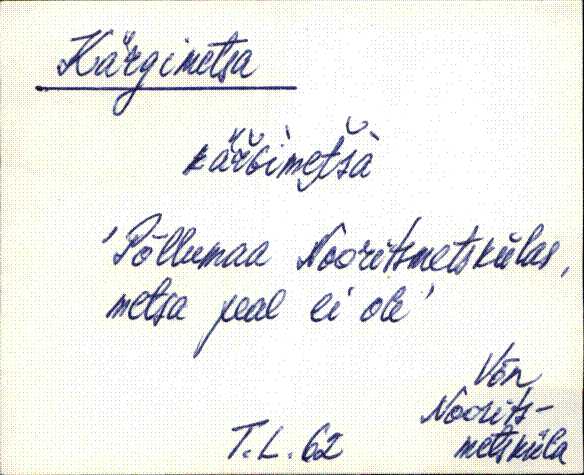 Kärgimetsa
kärǵimetsä
'Põllumaa Nooritsmetskülas,
metsa peal ei ole'
Võn
Noorits-
metsküla
T.L. 62